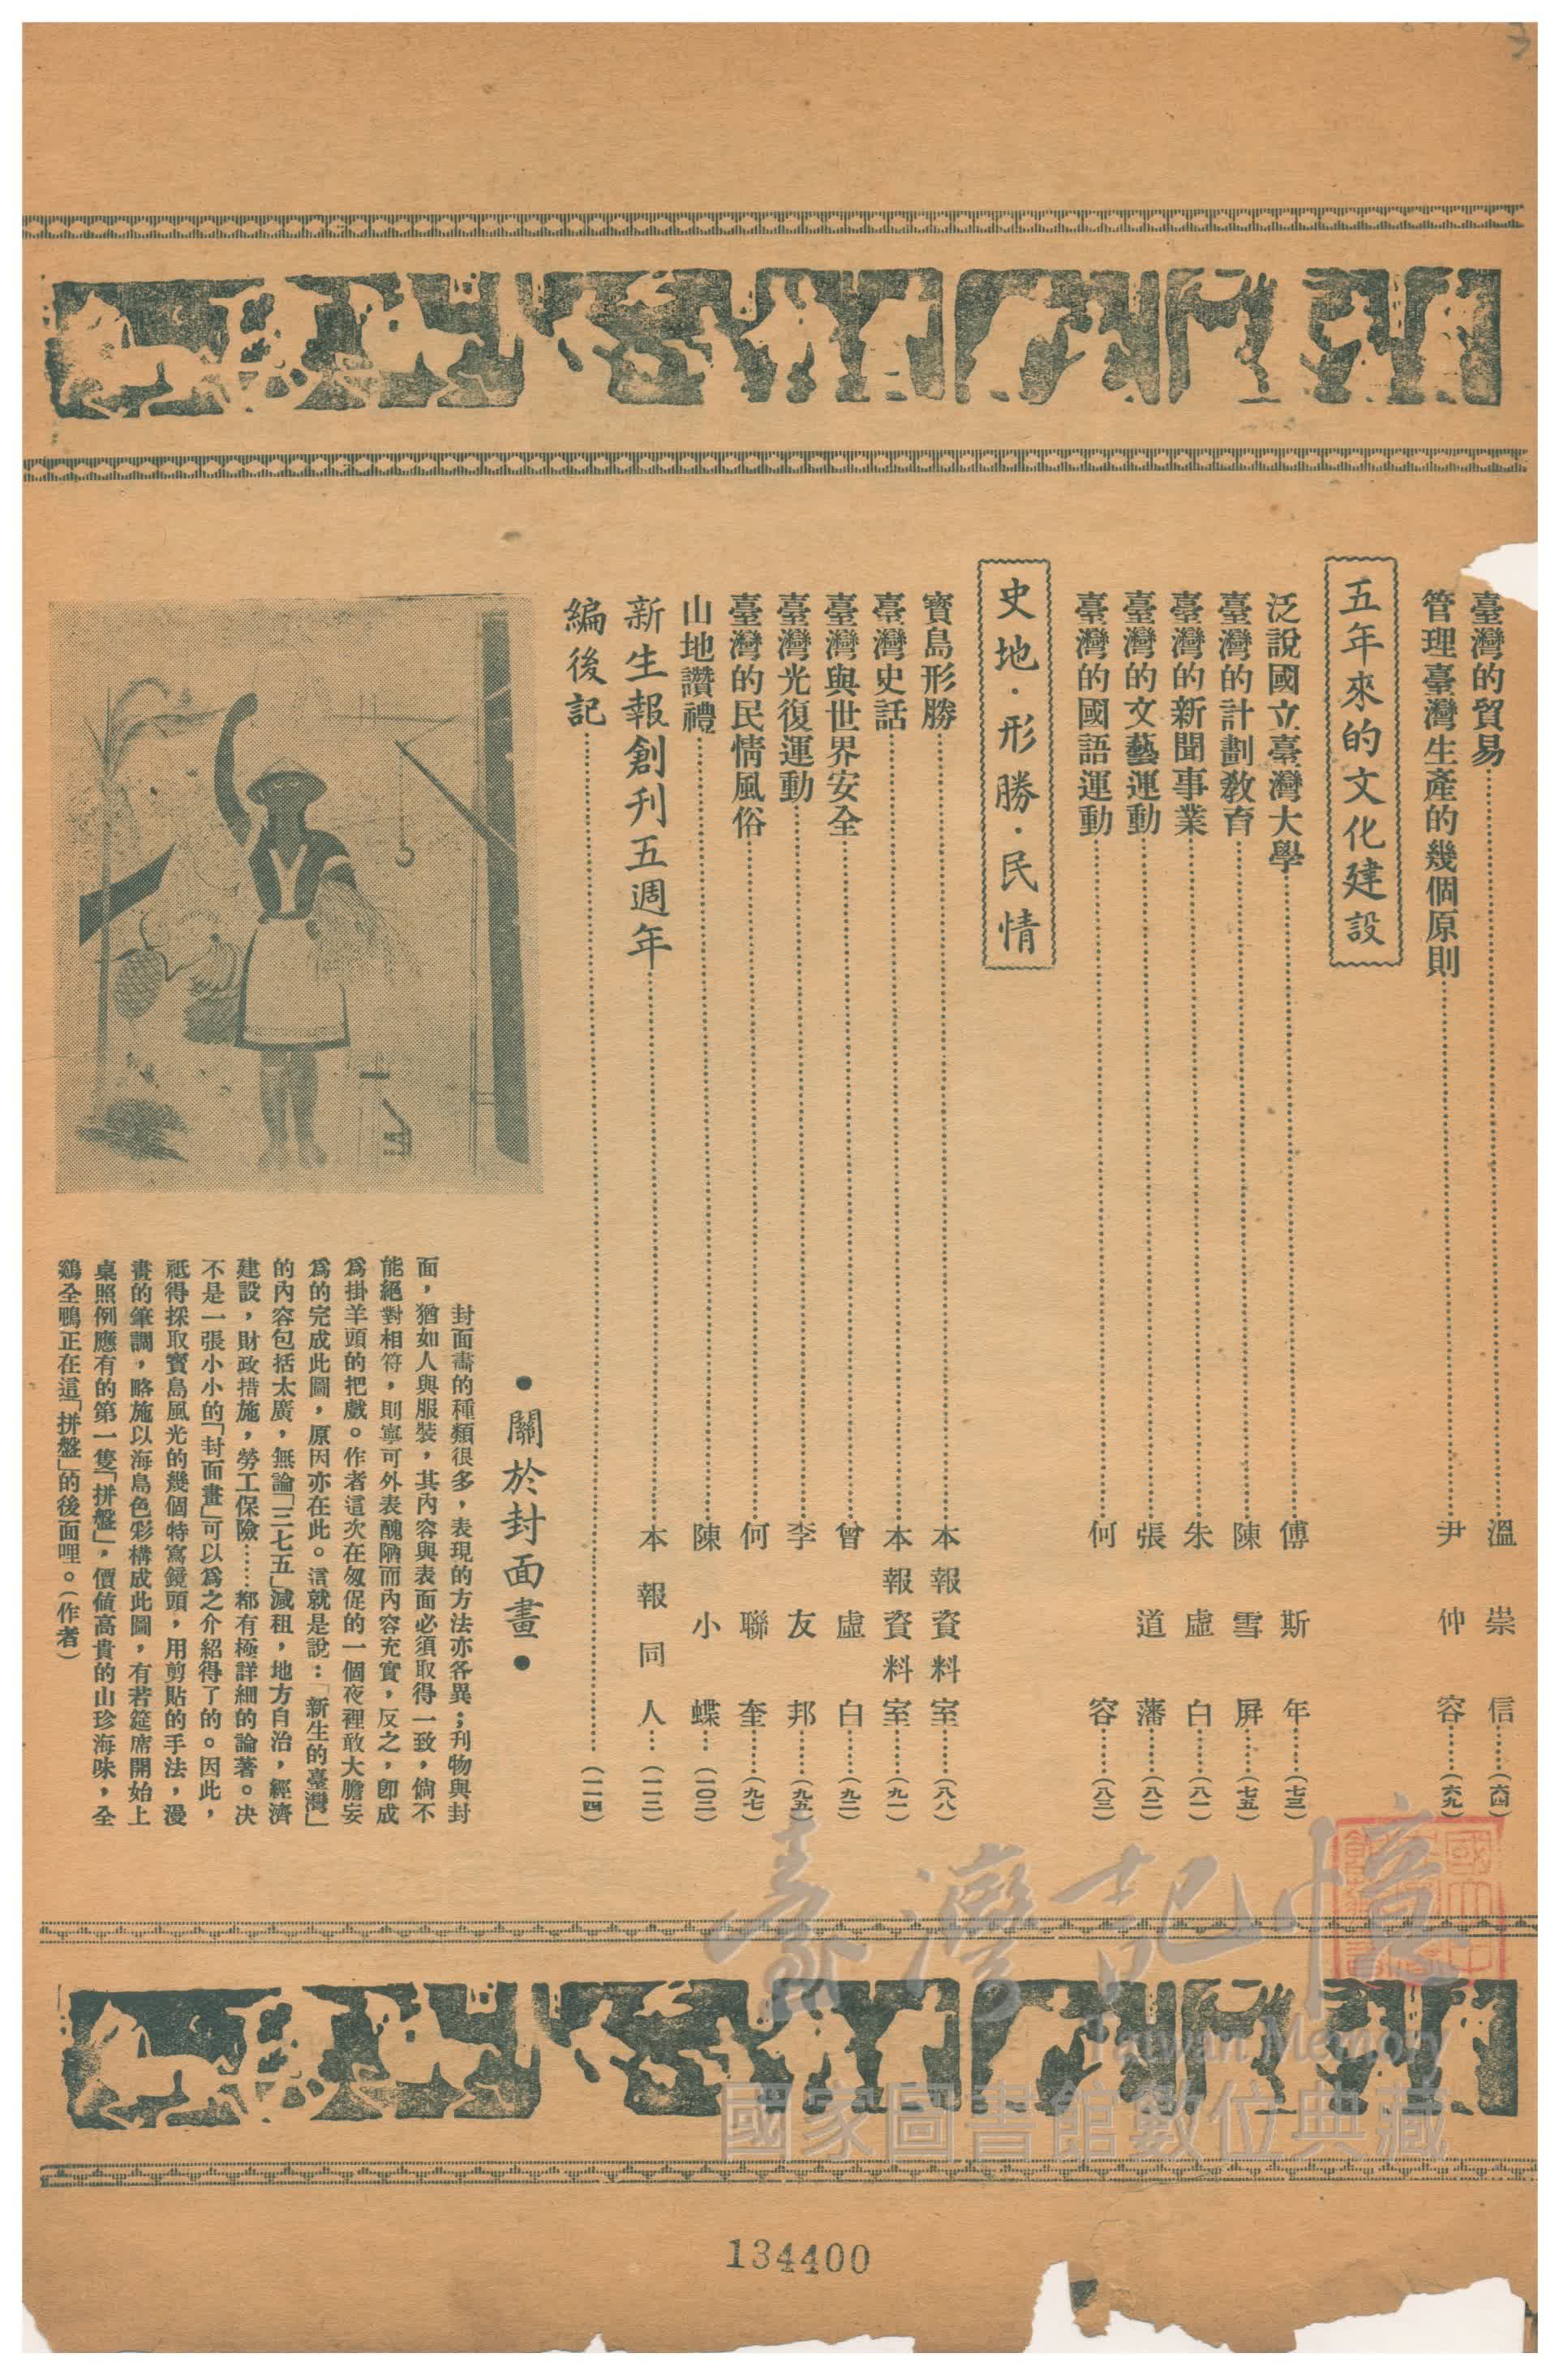 臺灣的貿易……溫崇信……(六四)
管理臺灣生產的幾個原則……尹仲容……(六九)
五年來的文化建設
泛說國立臺灣大學……傅斯年……(七三)
臺灣的計劃教育……陳雪屏……(七五)
臺灣的新聞事業……朱虛白……(八一)
臺灣的文藝運動……張道藩……(八二)
臺灣的國語運動……何容……(八三)
史地·形勝·民情
寳島形勝……本報資料室……(八八)
臺灣史話……本報資料室……(九一)
臺灣與世界安全……曾虛白……(九二)
臺灣光復運動……李友邦……(九五)
臺灣的民情風俗……何聯奎……(九七)
山地讚禮……陳小蝶……(一〇二)
新生報創刊五週年……本報同人……(一一二)
編後記……(一一四)
•關於封面畫•
封面畫的種類很多,表現的方法亦各異;刋物與封
面,猶如人與服裝,其內容與表面必須取得一致,倘不
能絕對相符,則寧可外表醜陋而內容充實,反之,卽成
爲掛羊頭的把戲。作者這次在匆促的一個夜裡敢大膽妄
爲的完成此圖,原因亦在此。這就是說:「新生的臺灣」
的內容包括太廣,無論「三七五」減租,地方自治,經濟
建設,財政措施,勞工保險……都有極詳細的論著。決
不是一張小小的「封面畫」可以爲之介紹得了的。因此,
祗得採取寳島風光的幾個特寫鏡頭,用剪貼的手法,漫
畫的筆調,略施以海島色彩構成此圖,有若筵席開始上
桌照例應有的第一隻「拼盤」,價値高貴的山珍海味,全
鷄全鴨正在這「拼盤」的後面哩。(作者)
臺灣記憶
Taiwan Memory
國家圖書館數位典藏
134400